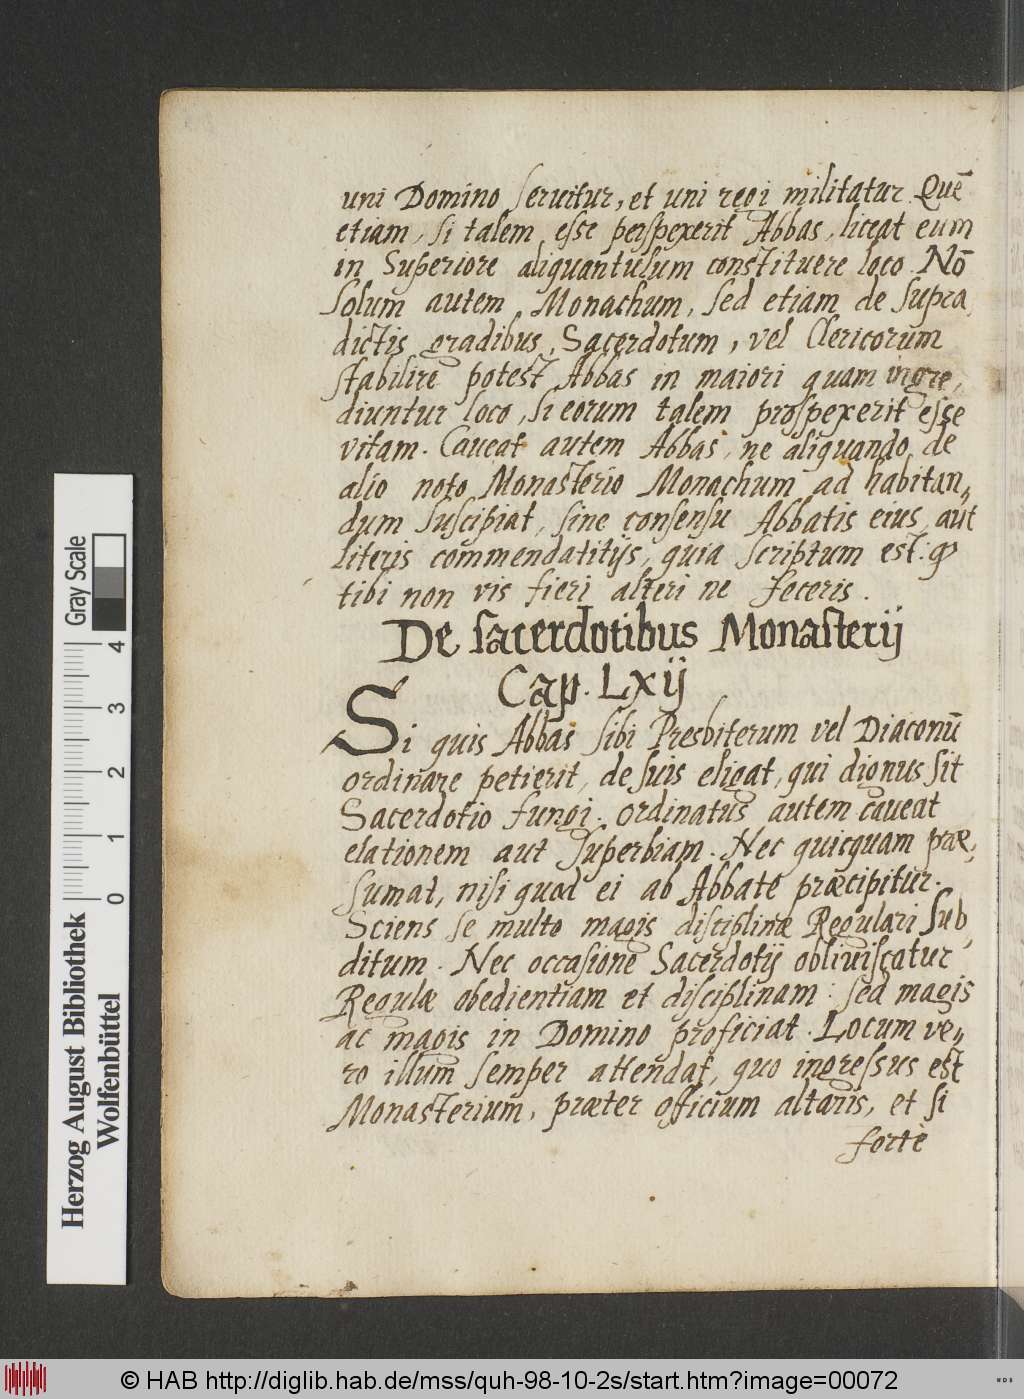 uni Domino seruitur, et uni regi militatur. Quē
etiam, si talem esse perspexerit Abbas, liceat eum
in Superiore aliquantulum constituere loco. Nō
Solum autem Monachum, sed etiam de supra
dictis gradibus, Sacerdotum, vel Clericorum
stabilire potest Abbas in maiori quam ingre,
diuntur loco, si eorum talem prospexerit esse
vitam. Caueat autem Abbas, ne aliquando de
alio noto Monasterio Monachum ad habitan„
dum suscipiat, sine consensu Abbatis eius, aut
literis commendatitijs, quia scriptum est: ꝙ
tibi non vis fieri alteri ne feceris.
De sacerdotibus Monasterij
Cap. Lxij
Si quis Abbas sibi Presbiterum vel Diaconū
ordinare petierit, de suis eligat, qui dignus sit
Sacerdotio fungi. Ordinatus autem caueat
elationem aut superbiam. Nec quicquam præ,
sumat, nisi quod ei ab Abbate præcipitur.
Sciens se multo magis disciplinæ Regulari sub,
ditum. Nec occasione Sacerdotij obliuiscatur
Regulæ obedientiam et disciplinam: sed magis
ac magis in Domino proficiat. Locum ve„
ro illum semper attendat, quo ingressus est
Monasterium, præter officium altaris, et si
fortè
Herzog August Bibliothek
Wolfenbüttel
Gray Scale
0 1 2 3 4
© HAB http://diglib.hab.de/mss/quh-98-10-2s/start.htm?image=00072